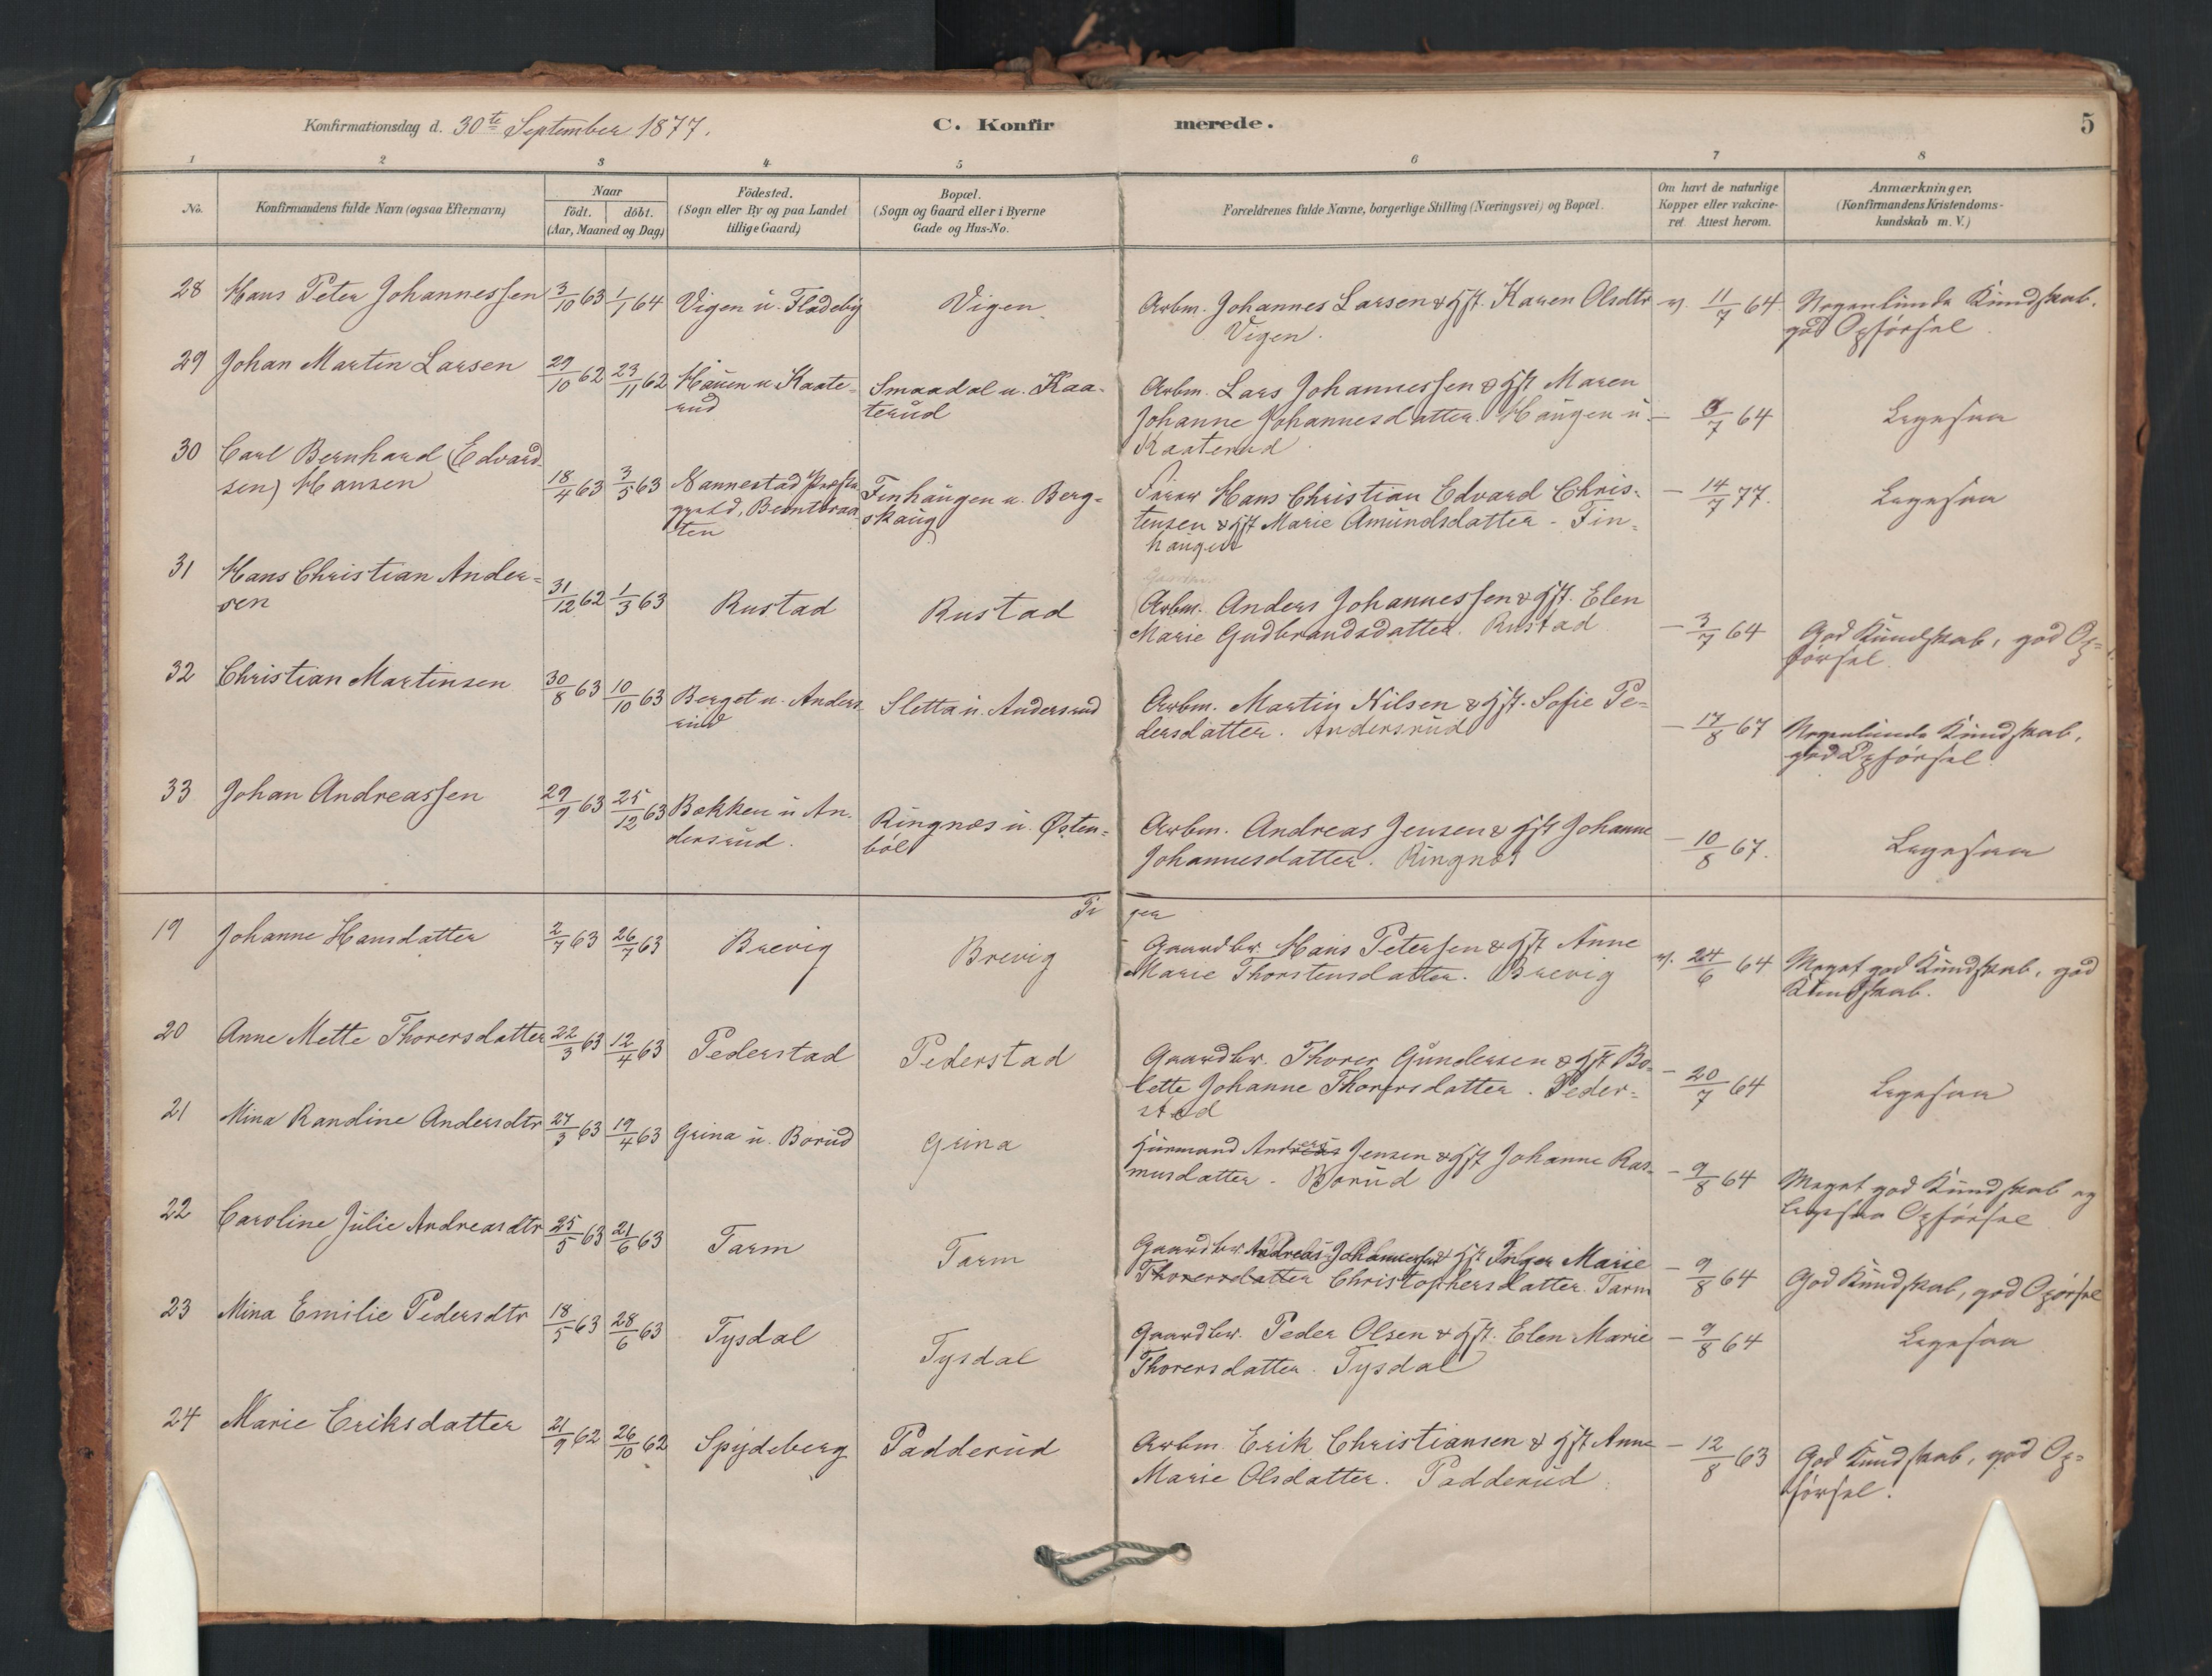 Konfirmationsdag d. 30te September 1877.
C. Konfirmerede.
5
1 2 3 4 5 6 7 8
No.
Konfirmandens fulde Navn (ogsaa Efternavn)
Naar
födt. döbt.
(Aar, Maaned og Dag)
Födested.
(Sogn eller By og paa Landet
tillige Gaard)
Bopæl.
(Sogn og Gaard eller i Byerne
Gade og Hus-No.
Forældrenes fulde Navne, borgerlige Stilling (Næringsvei) og Bopæl.
Om havt de naturlige
Kopper eller vakcine-
ret. Attest herom.
Anmærkninger.
(Konfirmandens Kristendoms-
kundskab m. V.)
28 Hans Peter Johannessen 3/10 63 1/1 64 Vigen u. Fladeby Vigen Arbm. Johannes Larsen & Hst. Karen Olsdtr v. 11/7 64. Nogenlunde Kundskab,
Vigen. god Opförsel
29 Johan Martin Larsen 29/10 62 23/11 62 Haugen u Kaate- Smaadal u. Kaa- Arbm. Lars Johannessen & Hst Maren
rud terud Johanne Johannesdatter. Haugen u - /7 64 Ligesaa
Kaaterud
30 Carl Bernhard (Edvard-
sen) Hansen 18/4 63 3/5 63 Nannestad Præste- Finhaugen u. Berg- Hans Christian Edvard Chris- - 14/7 77. Ligesaa
gjeld, skaug tensen & Hst Marie Amundsdatter - Fin-
ten haugen
31 Hans Christian Ander-
sen 31/12 62 1/3 63 Rustad Rustad Arbm. Anders Johannessen & Hst. Elen
Marie Gudbrandsdatter. Rustad - 3/7 64 God Kundskab, god Op-
försel.
32 Christian Martinsen 30/8 63 10/10 63 Berget u. Anders- Sletta u. Andersrud Arbm. Martin Nilsen & Hst. Sofie Pe-
rud dersdatter. Andersrud - 17/8 67 Nogenlunde Kundskab,
god Opförsel.
33 Johan Andreassen 29/9 63 25/12 63 Bækken u An- Ringnæs u. Østen- Arbm. Andreas Jensen & Hst Johanne
dersrud. böl Johannesdatter. Ringnæs - 10/8 67. Ligesaa
Piger
19 Johanne Hansdatter 2/7 63 26/7 63 Brevig Brevig Gaardbr. Hans Petersen & Hst Anne
Marie Thorstensdatter. Brevig v. 24/6 64 Meget god Kundskab, god
Kundskab.
20 Anne Mette Thorersdatter 22/3 63 12/4 63 Pederstad Pederstad Gaardbr. Thorer Gundersen & Hst Bo-
lette Johanne Thorersdatter. Peder- - 20/7 64 Ligesaa
stad
21 Mina Randine Andersdtr 27/3 63 19/4 63 Grina u. Borud Grina Husmand Anders Jensen & Hst Johanne Ras-
musdatter. Borud - 9/8 64 Meget god Kundskab og
ligesaa Opförsel
22 Caroline Julie Andreasdtr 25/5 63 21/6 63 Tarm Tarm Gaardbr. Andreas Johannessen & Hst Inger Marie
Thorersdatter Christophersdatter. Tarm - 9/8 64 God Kundskab, god Opörsel
23 Mina Emilie Pedersdtr 18/5 63 28/6 63 Tysdal Tysdal Gaardbr. Peder Olsen & Hst. Elen Marie - 9/8 64 Ligesaa
Thorersdatter. Tysdal
24 Marie Eriksdatter 21/9 62 26/10 62 Spydeberg Padderud Arbm. Erik Christiansen & Hst Anne - 12/8 63 God Kundskab, god Op-
Marie Olsdatter. Padderud. försel.